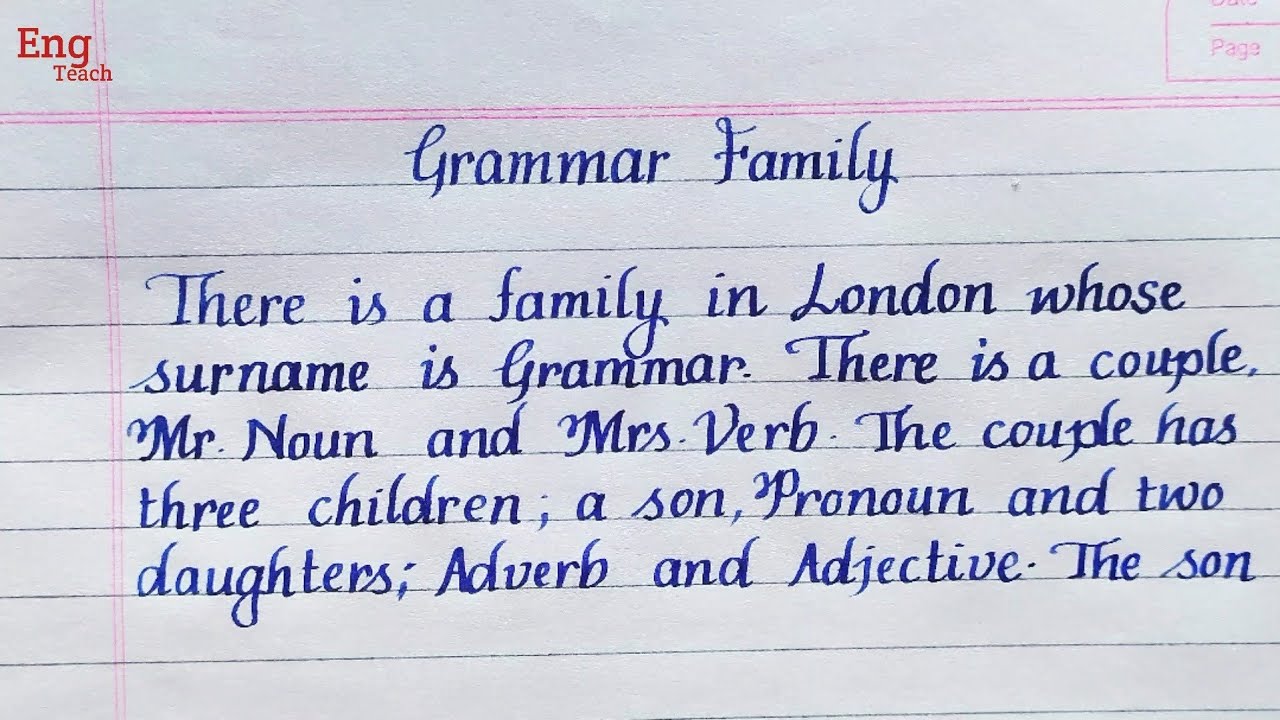 Eng
Teach
Date
Page
Grammar Family
There is a family in London whose
surname is Grammar. There is a couple,
Mr. Noun and Mrs. Verb. The couple has
three children; a son, Pronoun and two
daughters; Adverb and Adjective. The son